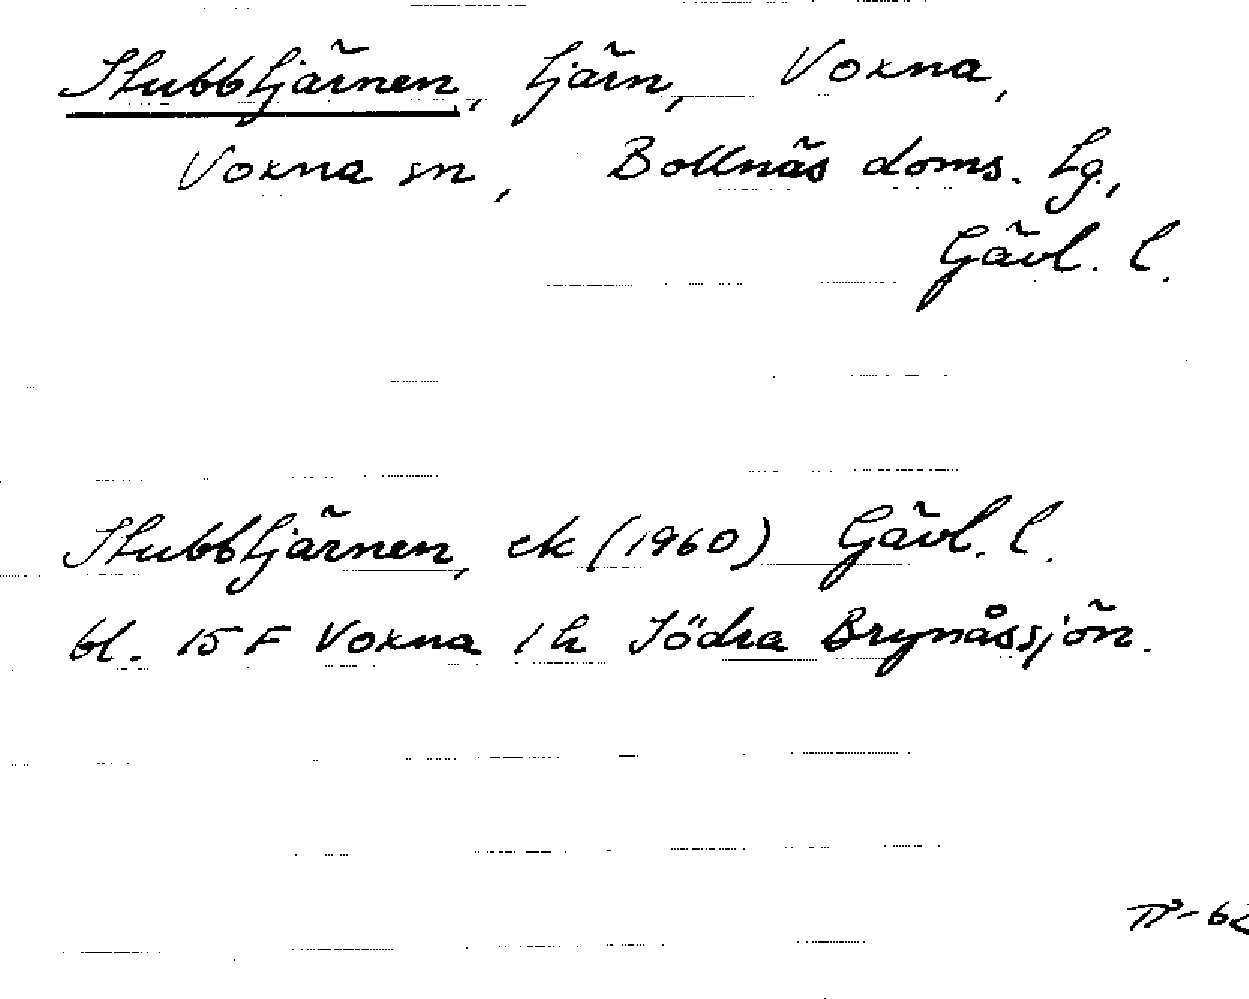 Stubbtjärnen, tjärn, Voxna,
Voxna sn, Bollnäs doms. lg,
Gävl. l.
Stubbtjärnen, ek (1960) Gävl. l.
bl. 15 F Voxna 1 h Södra Brynåssjön.